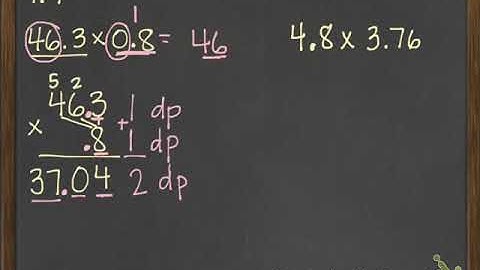 46.3 x 0.8 = 46
1
4.8 x 3.76
5 2
46.3 +1 dp
x .8 1 dp
37.04 2 dp